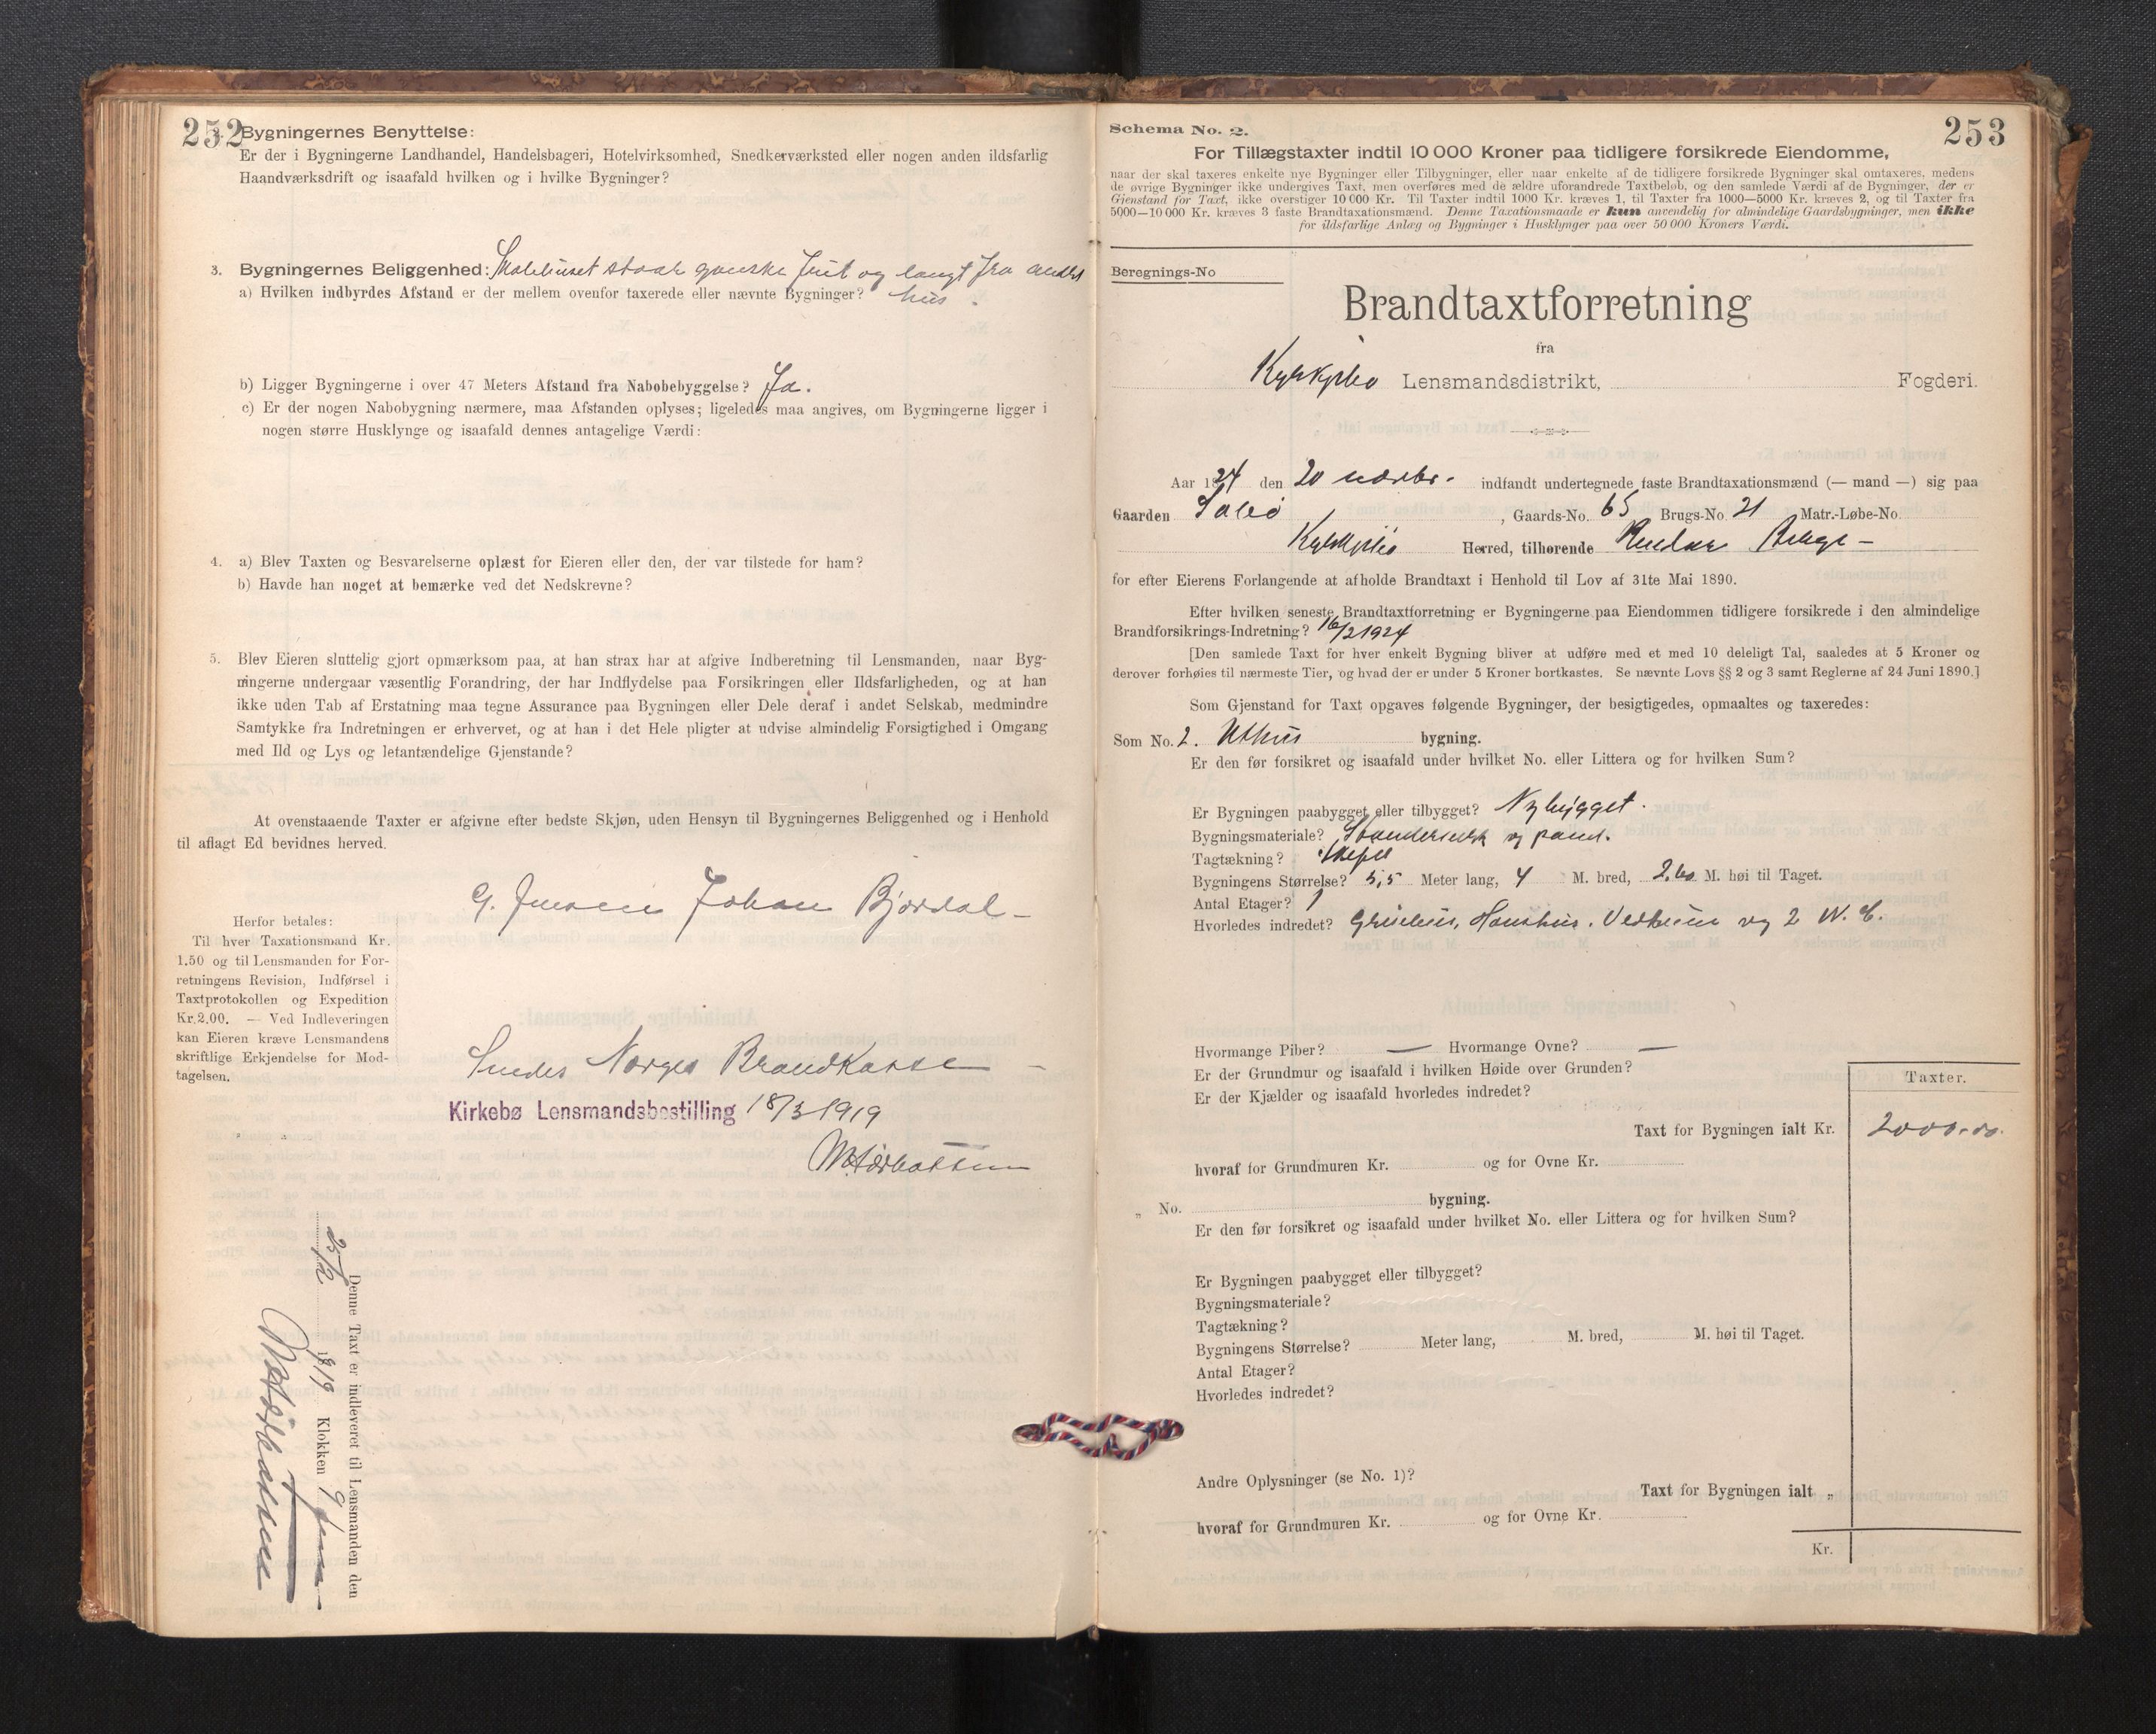 252
2. Bygningernes Benyttelse:
Er der i Bygningerne Landhandel, Handelsbageri, Hotelvirksomhed, Snedkerværksted eller nogen anden ildsfarlig
Haandværksdrift og isaafald hvilken og i hvilke Bygninger?
3. Bygningernes Beliggenhed: Skolehuset staar ganske frit og langt fra andre
a) Hvilken indbyrdes Afstand er der mellem ovenfor taxerede eller nævnte Bygninger? hus.
b) Ligger Bygningerne i over 47 Meters Afstand fra Nabobebyggelse? Ja.
c) Er der nogen Nabobygning nærmere, maa Afstanden oplyses; ligeledes maa angives, om Bygningerne ligger i
nogen større Husklynge og isaafald dennes antagelige Værdi:
4. a) Blev Taxten og Besvarelserne oplæst for Eieren eller den, der var tilstede for ham?
b) Havde han noget at bemærke ved det Nedskrevne?
5. Blev Eieren sluttelig gjort opmærksom paa, at han strax har at afgive Indberetning til Lensmanden, naar Byg-
ningerne undergaar væsentlig Forandring, der har Indflydelse paa Forsikringen eller Ildsfarligheden, og at han
ikke uden Tab af Erstatning maa tegne Assurance paa Bygningen eller Dele deraf i andet Selskab, medmindre
Samtykke fra Indretningen er erhvervet, og at han i det Hele pligter at udvise almindelig Forsigtighed i Omgang
med Ild og Lys og letantændelige Gjenstande?
At ovenstaaende Taxter er afgivne efter bedste Skjøn, uden Hensyn til Bygningernes Beliggenhed og i Henhold
til aflagt Ed bevidnes herved.
G. Johan Bjordal
Herfor betales:
Til hver Taxationsmand Kr.
1.50 og til Lensmanden for For-
retningens Revision, Indførsel i
Taxtprotokollen og Expedition
Kr. 2.00. — Ved Indleveringen
kan Eieren kræve Lensmandens
skriftlige Erkjendelse for Mod-
tagelsen.
Sendes Norges Brandkasse
Kirkebø Lensmandsbestilling 18/3 1919
Denne Taxt er indleveret til Lensmanden den
25/2 1919 Klokken 9
253
Schema No. 2.
For Tillægstaxter indtil 10 000 Kroner paa tidligere forsikrede Eiendomme,
naar der skal taxeres enkelte nye Bygninger eller Tilbygninger, eller naar enkelte af de tidligere forsikrede Bygninger skal omtaxeres, medens
de øvrige Bygninger ikke undergives Taxt, men overføres med de ældre uforandrede Taxtbeløb, og den samlede Værdi af de Bygninger, der er
Gjenstand for Taxt, ikke overstiger 10 000 Kr. Til Taxter indtil 1000 Kr. kræves 1, til Taxter fra 1000—5000 Kr. kræves 2, og til Taxter fra
5000—10 000 Kr. kræves 3 faste Brandtaxationsmænd. Denne Taxationsmaade er kun anvendelig for almindelige Gaardsbygninger, men ikke
for ildsfarlige Anlæg og Bygninger i Husklynger paa over 50 000 Kroners Værdi.
Beregnings-No
Brandtaxtforretning
fra
Kyrkjebø Lensmandsdistrikt, Fogderi.
Aar 1924 den 20 indfandt undertegnede faste Brandtaxationsmænd (— mand —) sig paa
Gaarden , Gaards-No. 65 Brugs-No. 21 Matr.-Løbe-No.
Kyrkjebø Herred, tilhørende
for efter Eierens Forlangende at afholde Brandtaxt i Henhold til Lov af 31te Mai 1890.
Efter hvilken seneste Brandtaxtforretning er Bygningerne paa Eiendommen tidligere forsikrede i den almindelige
Brandforsikrings-Indretning? 16/2 1924
[Den samlede Taxt for hver enkelt Bygning bliver at udføre med et med 10 deleligt Tal, saaledes at 5 Kroner og
derover forhøies til nærmeste Tier, og hvad der er under 5 Kroner bortkastes. Se nævnte Lovs §§ 2 og 3 samt Reglerne af 24 Juni 1890.]
Som Gjenstand for Taxt opgaves følgende Bygninger, der besigtigedes, opmaaltes og taxeredes:
Som No. 2. Uthus bygning.
Er den før forsikret og isaafald under hvilket No. eller Littera og for hvilken Sum?
Er Bygningen paabygget eller tilbygget? Nybygget.
Bygningsmateriale? og panel.
Tagtækning? Skifer
Bygningens Størrelse? 5,5 Meter lang, 4 M. bred, 2,60 M. høi til Taget.
Antal Etager? 1
Hvorledes indredet? Grisehus, Hønshus, og 2 W. C.
Hvormange Piber? — Hvormange Ovne? —
Er der Grundmur og isaafald i hvilken Høide over Grunden?
Er der Kjælder og isaafald hvorledes indredet?
Taxter.
Taxt for Bygningen ialt Kr. 2000.00.
hvoraf for Grundmuren Kr. og for Ovne Kr.
„ No. bygning.
Er den før forsikret og isaafald under hvilket No. eller Littera og for hvilken Sum?
Er Bygningen paabygget eller tilbygget?
Bygningsmateriale?
Tagtækning?
Bygningens Størrelse? Meter lang, M. bred, M. høi til Taget.
Antal Etager?
Hvorledes indredet?
Andre Oplysninger (se No. 1)?
Taxt for Bygningen ialt „
hvoraf for Grundmuren Kr. og for Ovne Kr.
Kr.